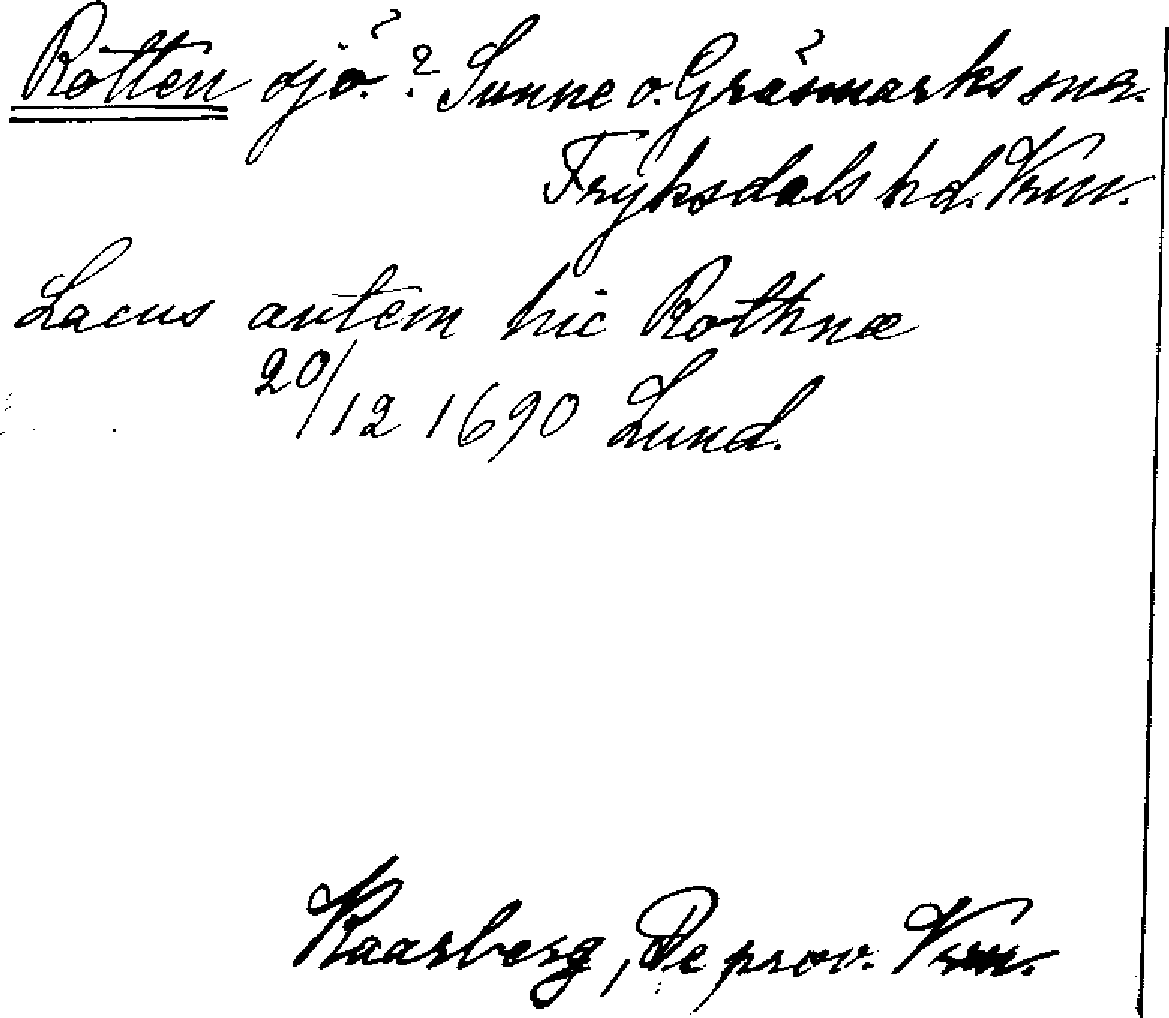 Rotten sjö.? Sunne o. Gräsmarks snr.
Fryksdals hd. Vrm.
Lacus autem hic Rothnæ
20/12 1690 Lund.
Kaarberg, De prov. Vrm.